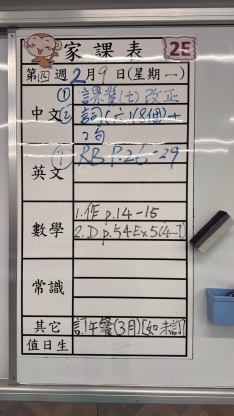 家課表 2E
第四週2月9日(星期一)
中文 ① 課業(七)改正
② 詞(六)(8個)+
2句
英文 ① RB P.26-29
數學 1.作 p.14-15
2.D p.54 Ex5(4-7)
常識
其它 訂午餐(3月)[如未訂]
值日生